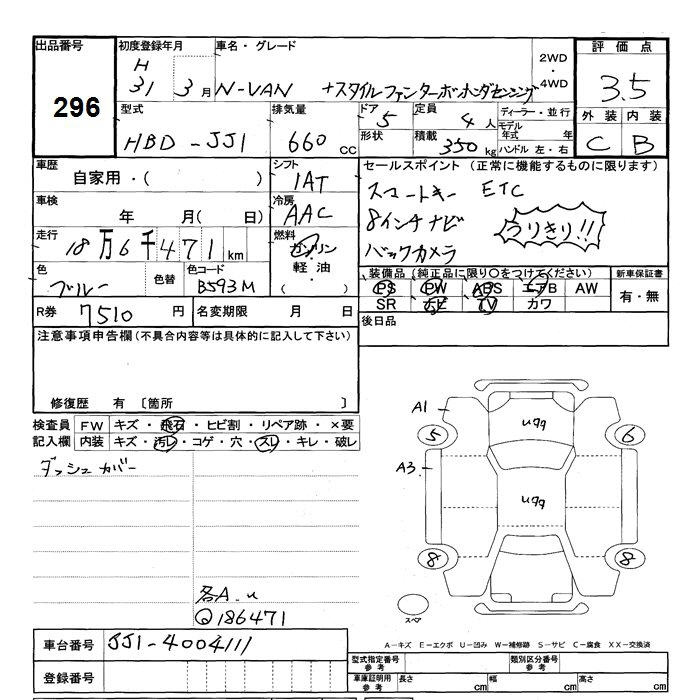 出品番号 初度登録年月 車名・グレード 2WD・4WD 評価点
296 H 31 3月 N-VAN +スタイルファンターボホンダセンシング 3.5
型式 排気量 ドア 定員 ディーラー・並行 外装 内装
HBD-JJ1 660cc 5 4人 モデル年式 年 C B
形状 積載 350kg ハンドル 左・右
車歴 シフト セールスポイント(正常に機能するものに限ります)
自家用・( ) IAT スマートキー ETC
車検 冷房 8インチナビ
年 月( 日) AAC うりきり!!
走行 燃料 バックカメラ
18万6千471km ガソリン・軽油・( )
色 色替 色コード 装備品(純正品に限り○をつけてください) 新車保証書
ブルー B593M PS PW ABS エアB AW 有・無
SR ナビ TV カワ
R券 7510円 名変期限 月 日 後日品
注意事項申告欄(不具合内容等は具体的に記入して下さい)
修復歴 有 〔箇所 〕
検査員 FW キズ・飛石・ヒビ割・リペア跡・×要
記入欄 内装 キズ・汚レ・コゲ・穴・スレ・キレ・破レ
ダッシュカバー
A1 U99
5 6
A3 U99
8 8
各A.u
Q186471
スペア
A-キズ E-エクボ U-凹み W-補修跡 S-サビ C-腐食 XX-交換済
車台番号 JJ1-4004111
型式指定番号参考 類別区分番号参考
登録番号 車庫証明用参考 長さ cm 幅 cm 高さ cm